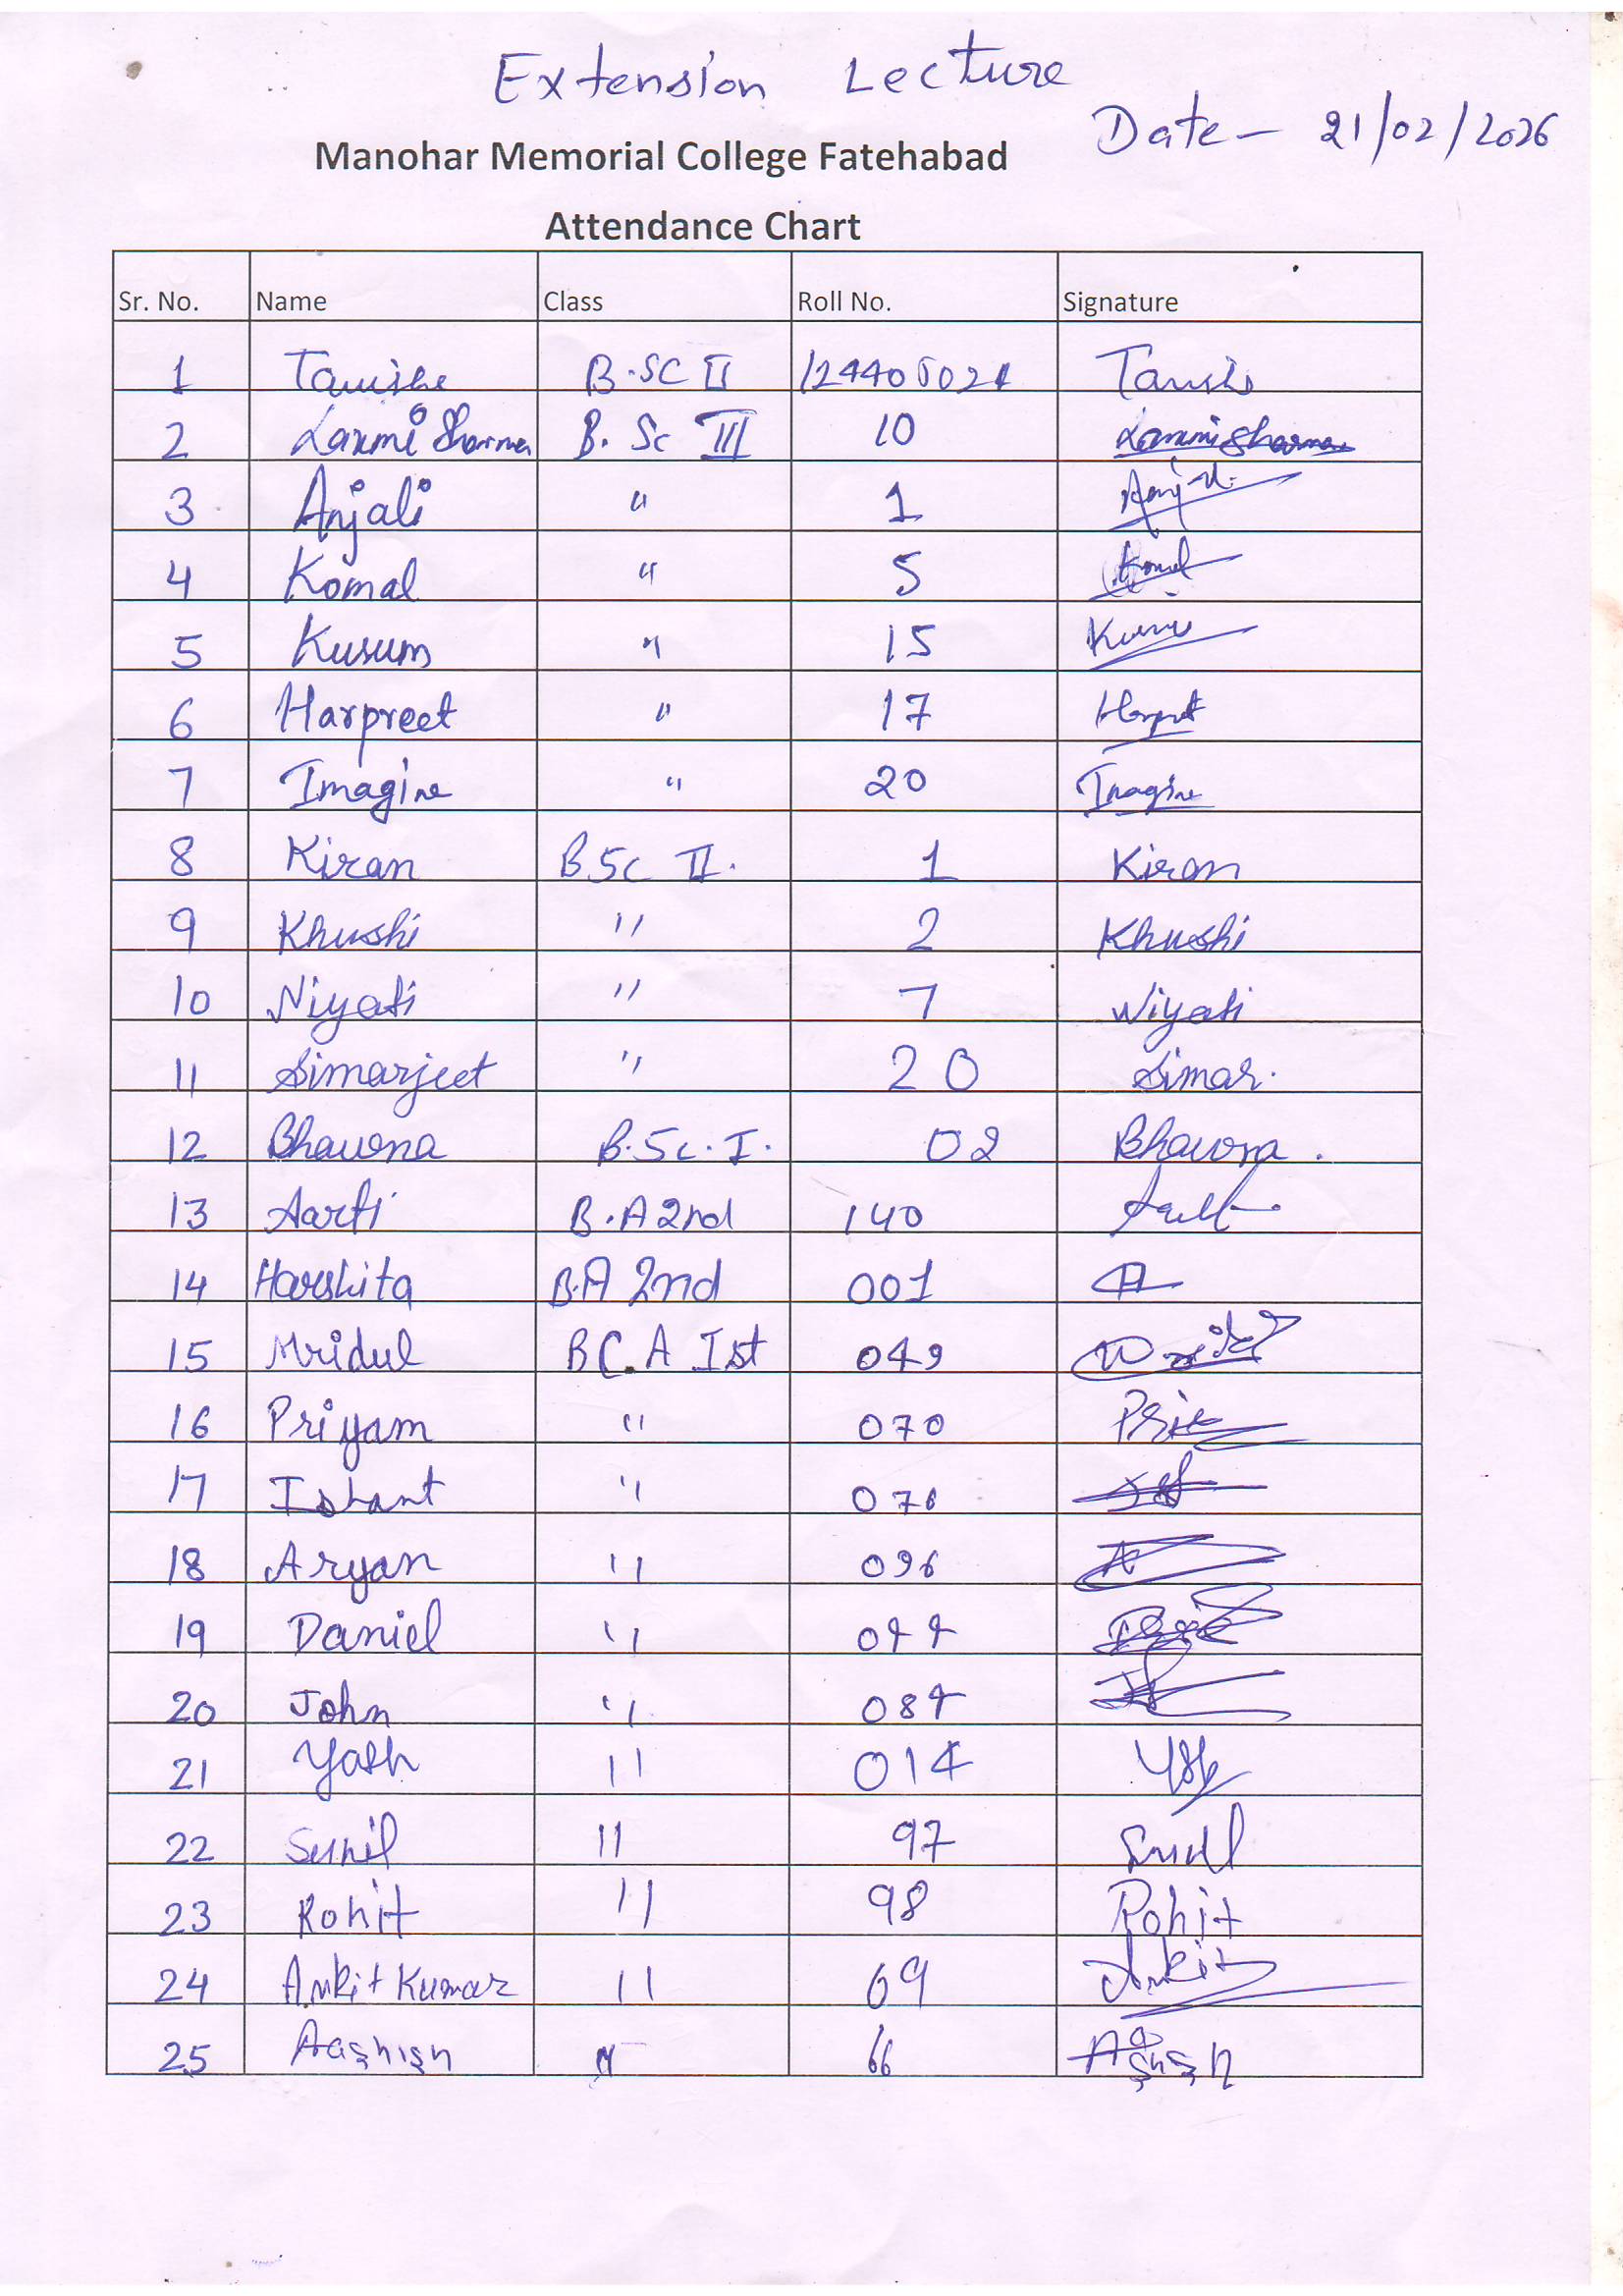 Extension Lecture
Date - 21/02/2026
Manohar Memorial College Fatehabad
Attendance Chart
Sr. No. Name Class Roll No. Signature
1 B.SC II
2 Laxmi Sharma B. Sc III 10 Laxmi Sharma
3 Anjali " 1
4 Komal " 5
5 Kusum " 15
6 Harpreet " 17
7 Imagine " 20 Imagine
8 Kiran BSc II. 1 Kiran
9 Khushi " 2 Khushi
10 Niyati " 7 Niyati
11 Simarjeet " 20 Simar.
12 Bhawna B.Sc.I. 02 Bhawna.
13 Aarti B.A 2nd 140
14 Harshita B.A 2nd 001
15 Mridul BC.A Ist 049
16 Priyam " 070
17 Ishant "
18 Aryan " 096
19 Daniel "
20 John "
21 Yash " 014
22 Sunil " 97 Sunil
23 Rohit " 98 Rohit
24 Ankit Kumar " 69 Ankit
25 Aashish " 66